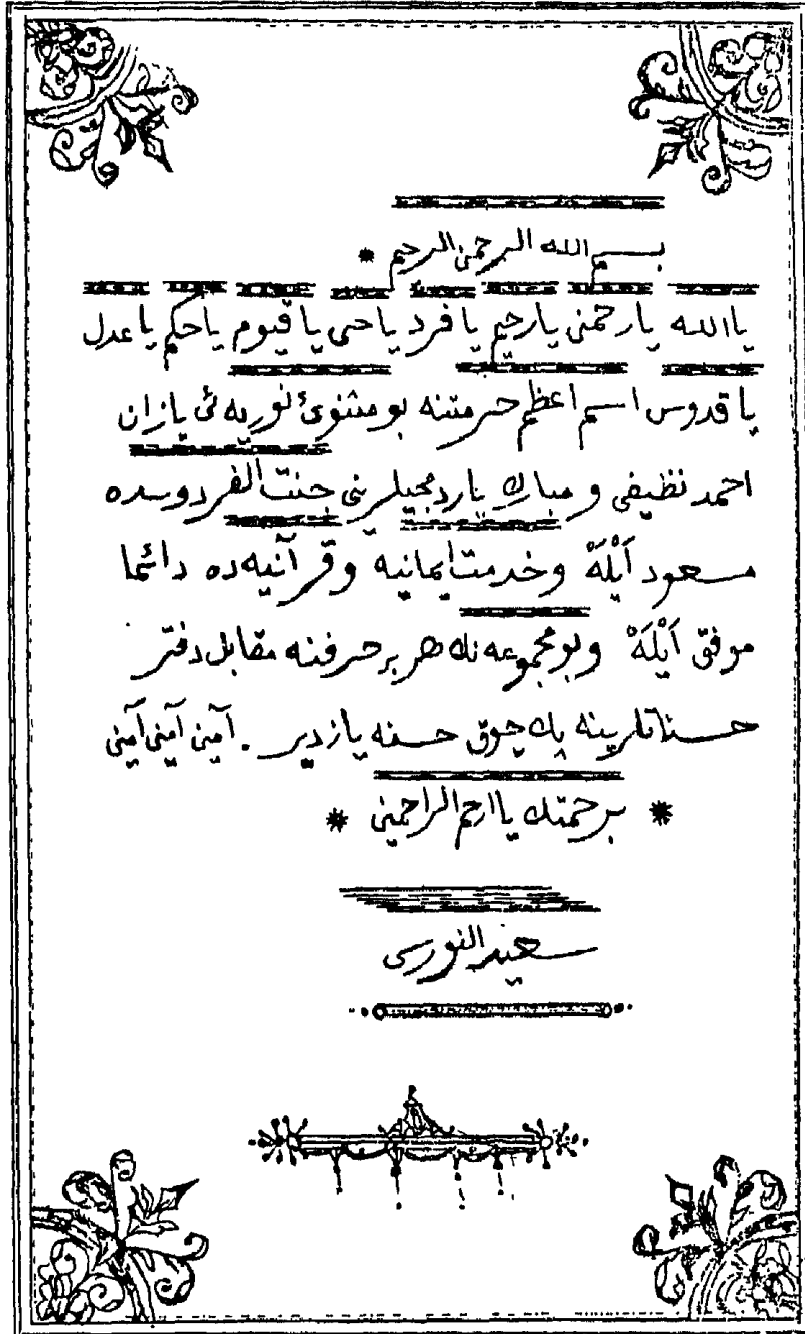 بسم الله الرحمن الرحيم *
يا الله يا رحمن يا رحيم يا فرد يا حى يا قيوم يا حكم يا عدل
يا قدوس اسم اعظم حرمتنه بو مثنوئ نوريه ئى يازان
احمد نظيفى و مبارك ياردمجيلرينى جنت الفردوسده
مسعود اَيْلَهْ و خدمت ايمانيه و قرآنيه ده دائما
موفق اَيْلَهْ و بو مجموعه نك هر بر حرفنه مقابل دفتر
حسناتلرينه پك چوق حسنه يازدير . آمين آمين آمين
* برحمتك يا ارحم الراحمين *
سعيد النورسى